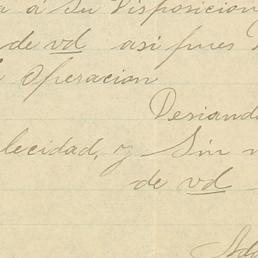 a á Su Disposicion
de vd asi pues
Operacion
Deseand
lecidad, y Sin
de vd